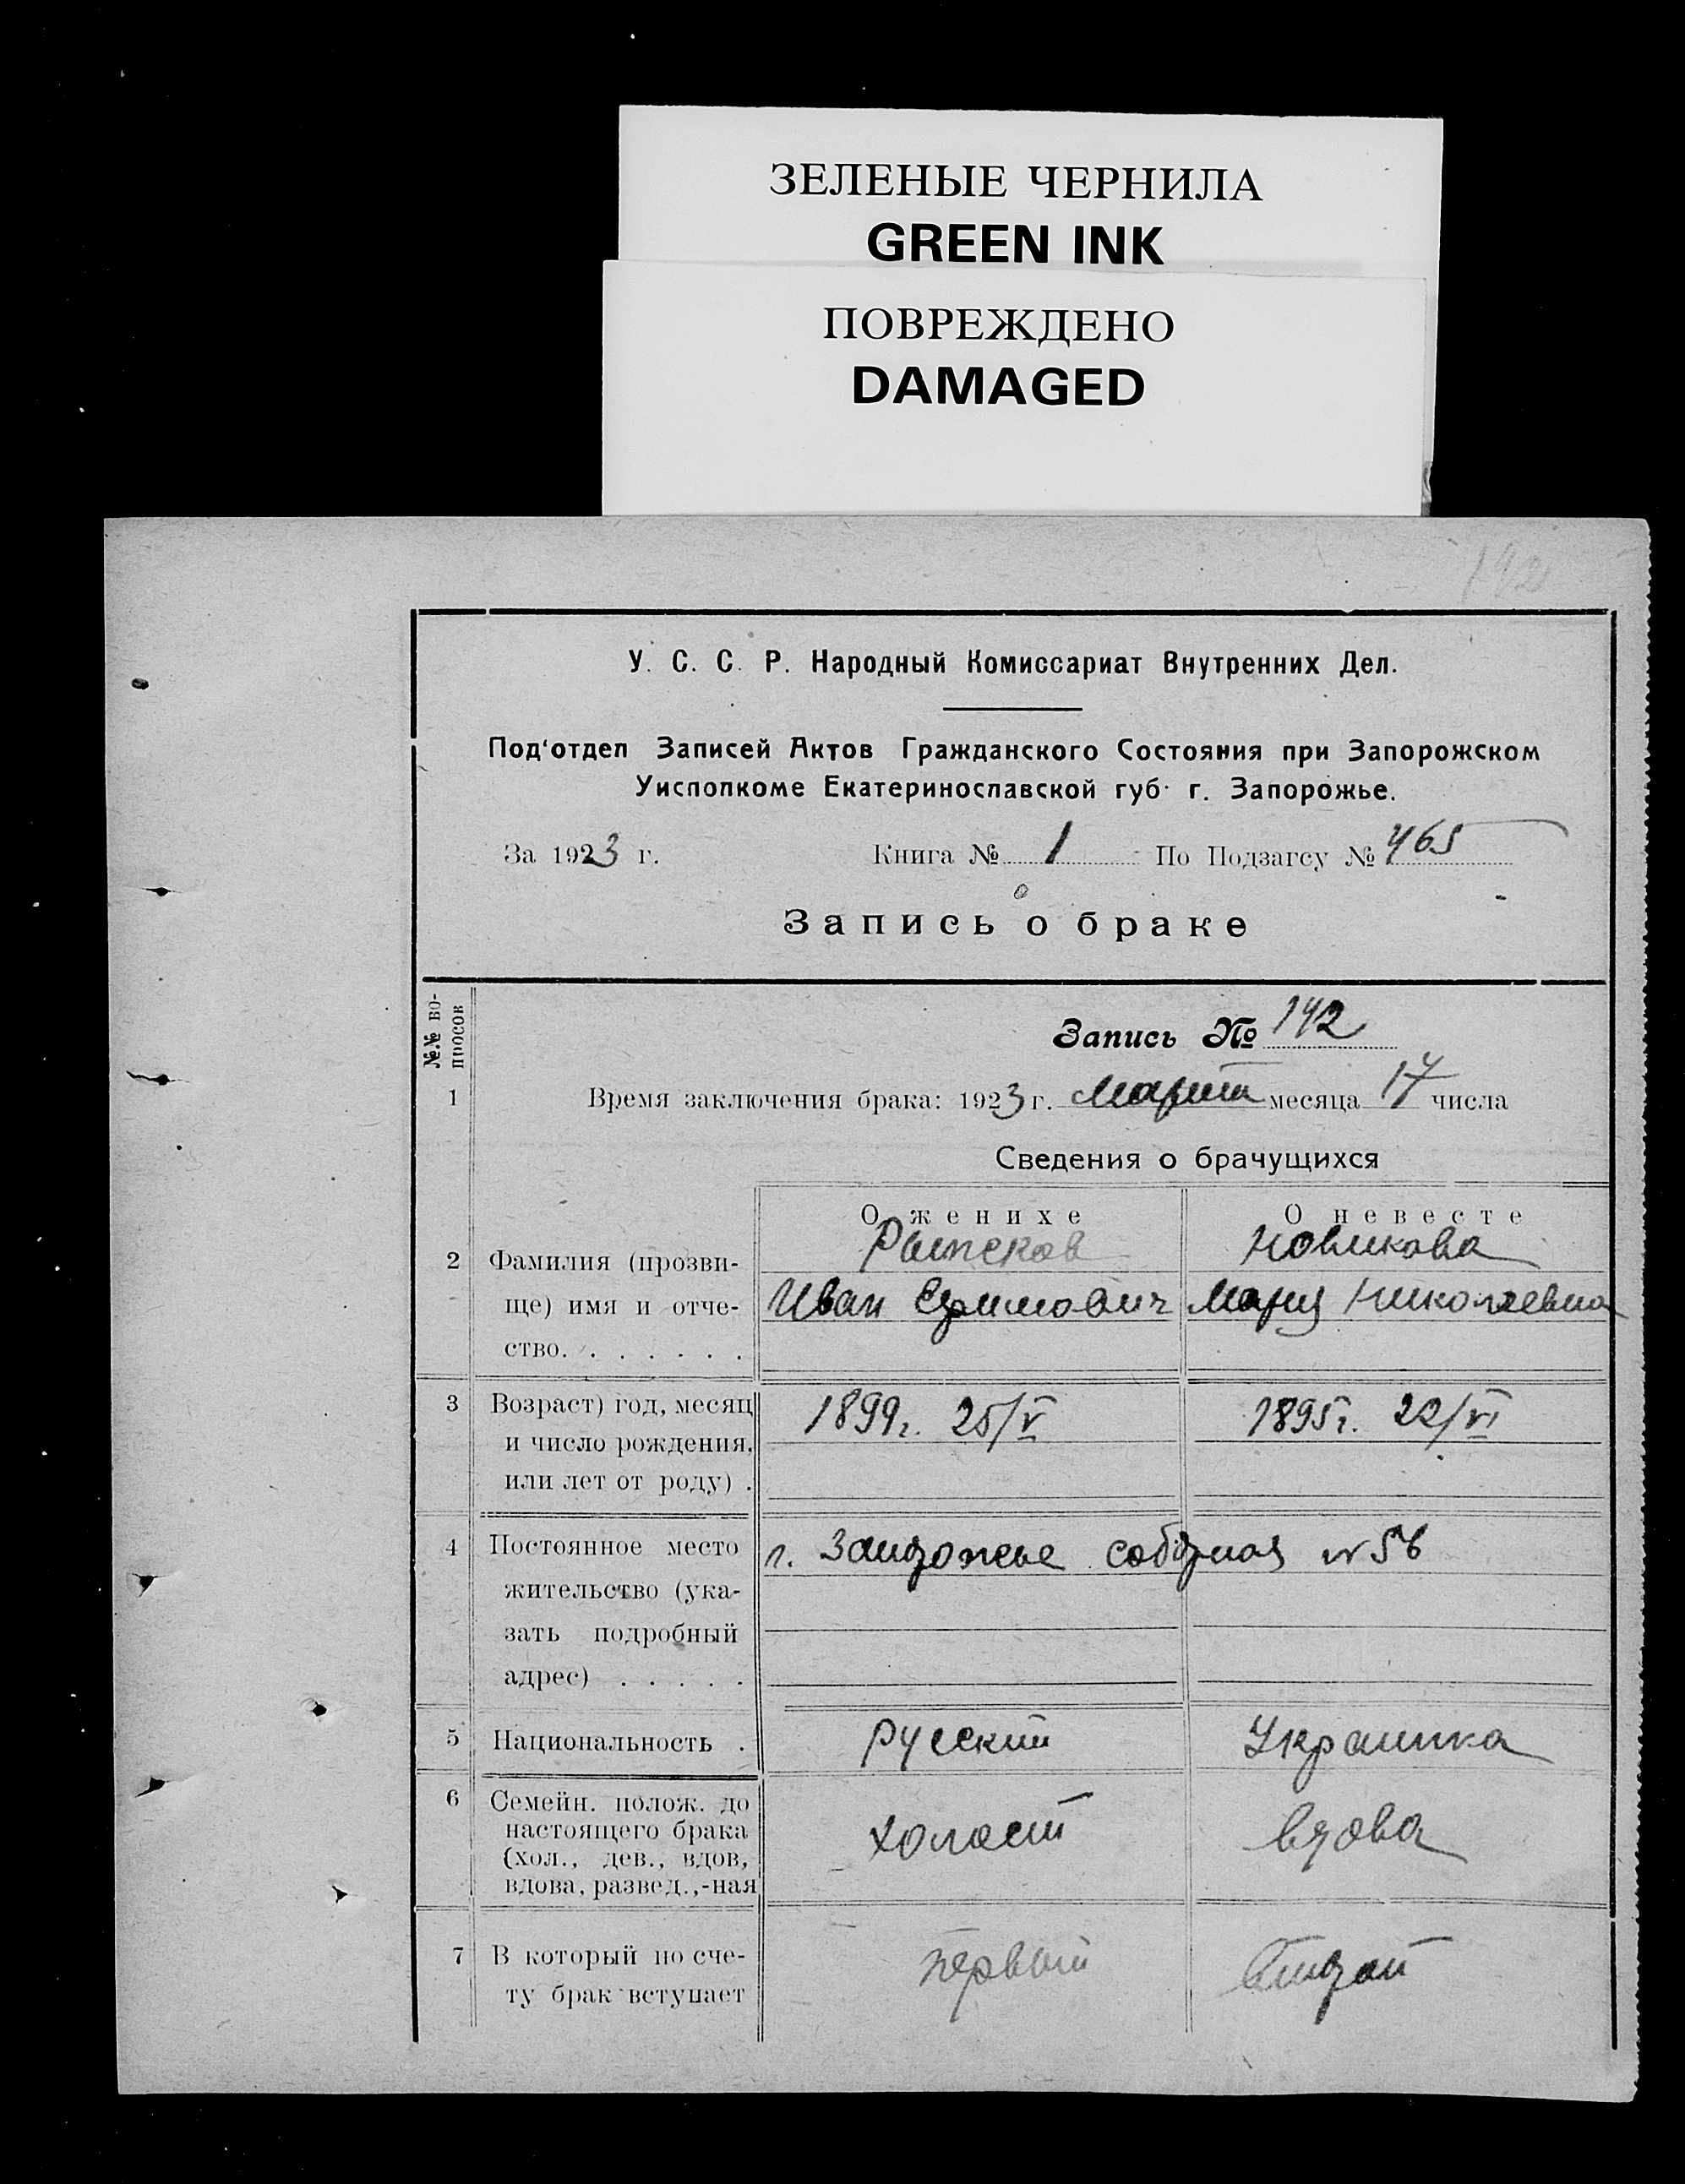 ЗЕЛЕНЫЕ ЧЕРНИЛА
GREEN INK
ПОВРЕЖДЕНО
DAMAGED
142
У. С. С. Р. Народный Комиссариат Внутренних Дел.
Под'отдел Записей Актов Гражданского Состояния при Запорожском
Уисполкоме Екатеринославской губ. г. Запорожье.
За 1923 г. Книга № 1 По Подзагсу № 465
Запись о браке
№№ во-
просов
Запись № 142
1 Время заключения брака: 1923 г. Марта месяца 17 числа
Сведения о брачущихся
О женихе О невесте
2 Фамилия (прозви- Новикова
ще) имя и отче- Иван Ефимович Мария Николаевна
ство. . . . . . .
3 Возраст) год, месяц 1899г. 25/V 1895г. 22/VI
и число рождения.
или лет от роду) .
4 Постоянное место г. Запорожье соборная № 56
жительство (ука-
зать подробный
адрес) . . . . .
5 Национальность . Русский Украинка
6 Семейн. полож. до
настоящего брака холост вдова
(хол., дев., вдов,
вдова, развед.,-ная
7 В который по сче- первый второй
ту брак вступает